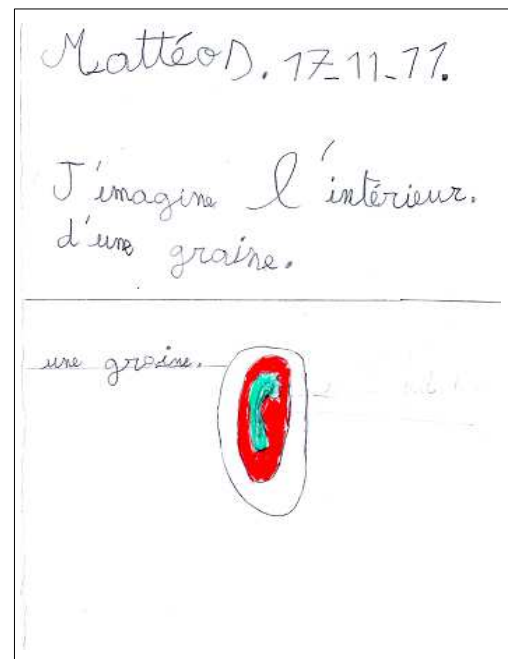 Mattéo D. 17-11-11.
J'imagine l'intérieur.
d'une graine.
une graine.